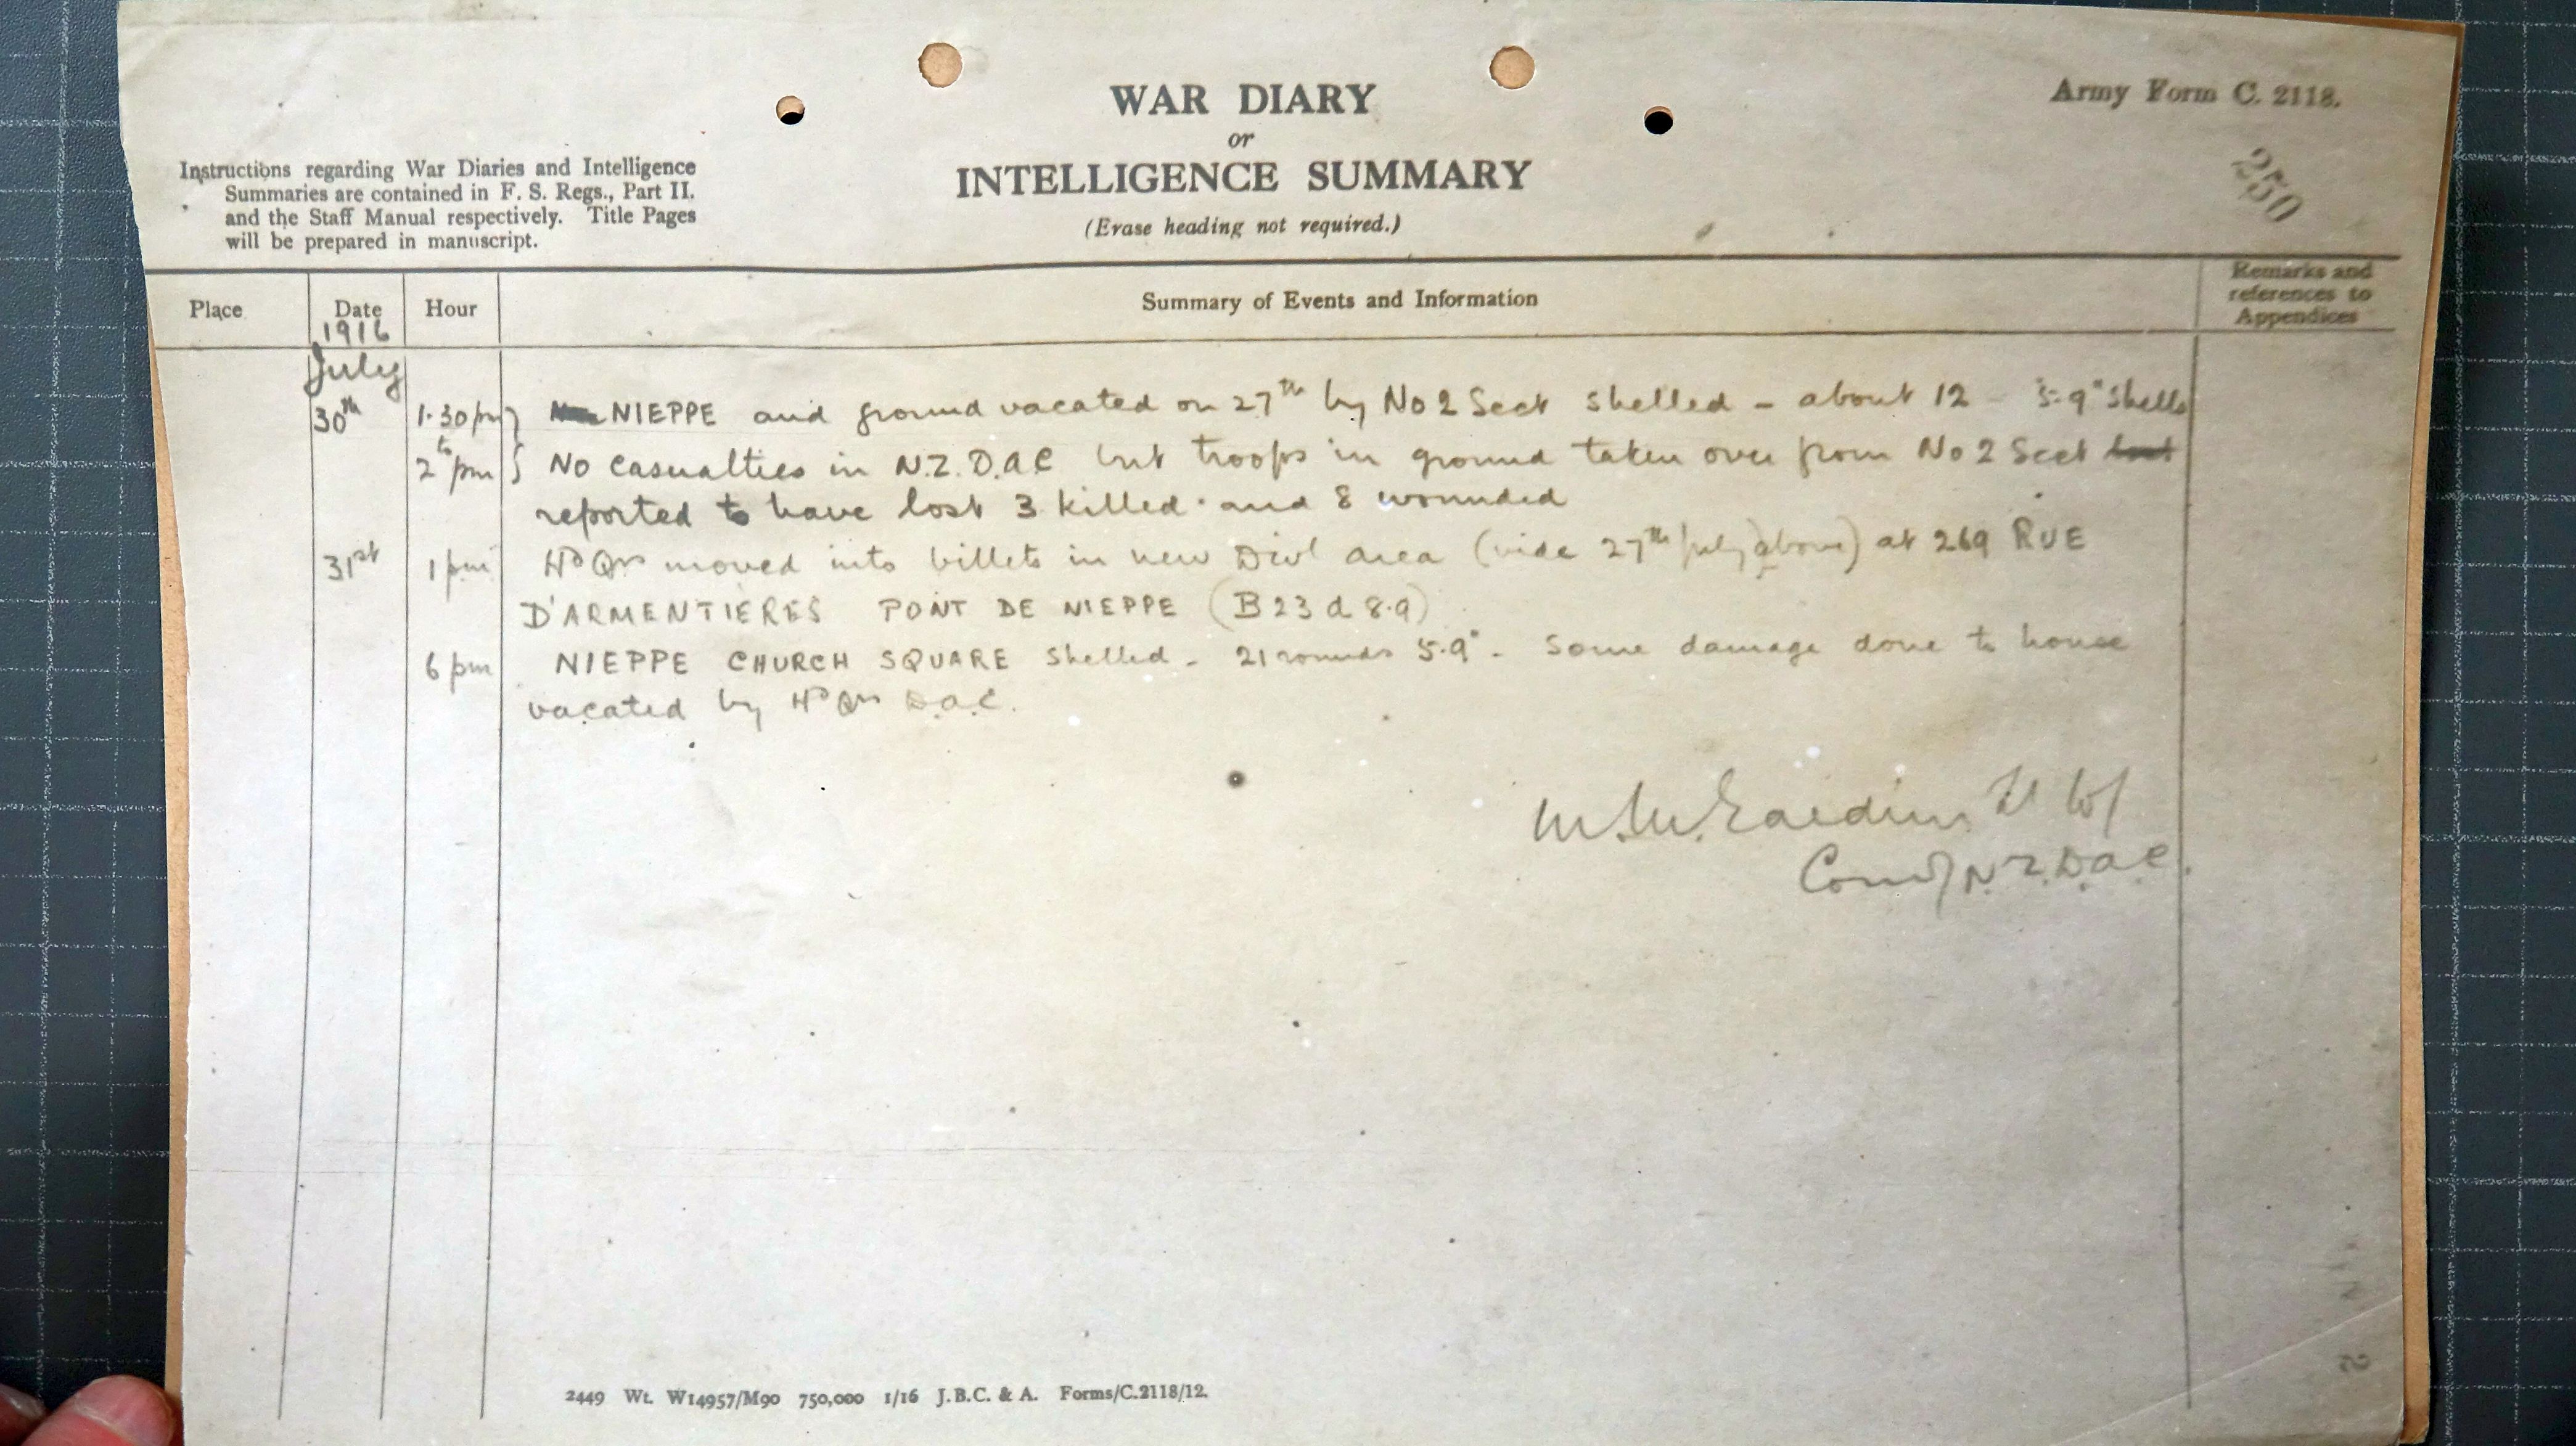 WAR DIARY
or
INTELLIGENCE SUMMARY
(Erase heading not required.)
Army Form C. 2118.
250
Instructions regarding War Diaries and Intelligence
Summaries are contained in F. S. Regs., Part II.
and the Staff Manual respectively. Title Pages
will be prepared in manuscript.
Place Date Hour Summary of Events and Information Remarks and
references to
Appendices
1916
July
30th 1.30 pm NIEPPE and ground vacated on 27th by No 2 Sect shelled - about 12 - 5.9" shells
to
2 pm No casualties in N.Z.D.A.C but troops in ground taken over from No 2 Sect
reported to have lost 3 killed and 8 wounded
31st 1 pm Hd Qrs moved into billets in new Divl area (vide 27th July above) at 269 RUE
D'ARMENTIERES PONT DE NIEPPE (B 23 d 8.9)
6 pm NIEPPE CHURCH SQUARE shelled - 21 rounds 5.9" - Some damage done to house
vacated by Hd Qrs D.A.C.
Comdg N.Z.D.A.C.
2449 Wt. W14957/M90 750,000 1/16 J.B.C. & A. Forms/C.2118/12.